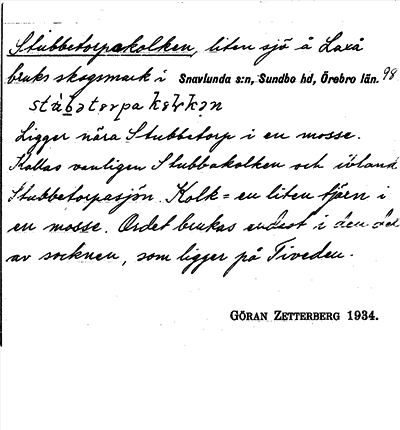 Stubbetorpakolken, liten sjö å Laxå
bruks skogsmark i Snavlunda s:n, Sundbo hd, Örebro län. 98
Ligger nära Stubbetorp i en mosse.
Kallas vanligen Stubbakolken och ibland
Stubbetorpasjön. Kolk = en liten tjärn i
en mosse. Ordet brukas endast i den del
av socknen, som ligger på Tiveden.
GÖRAN ZETTERBERG 1934.